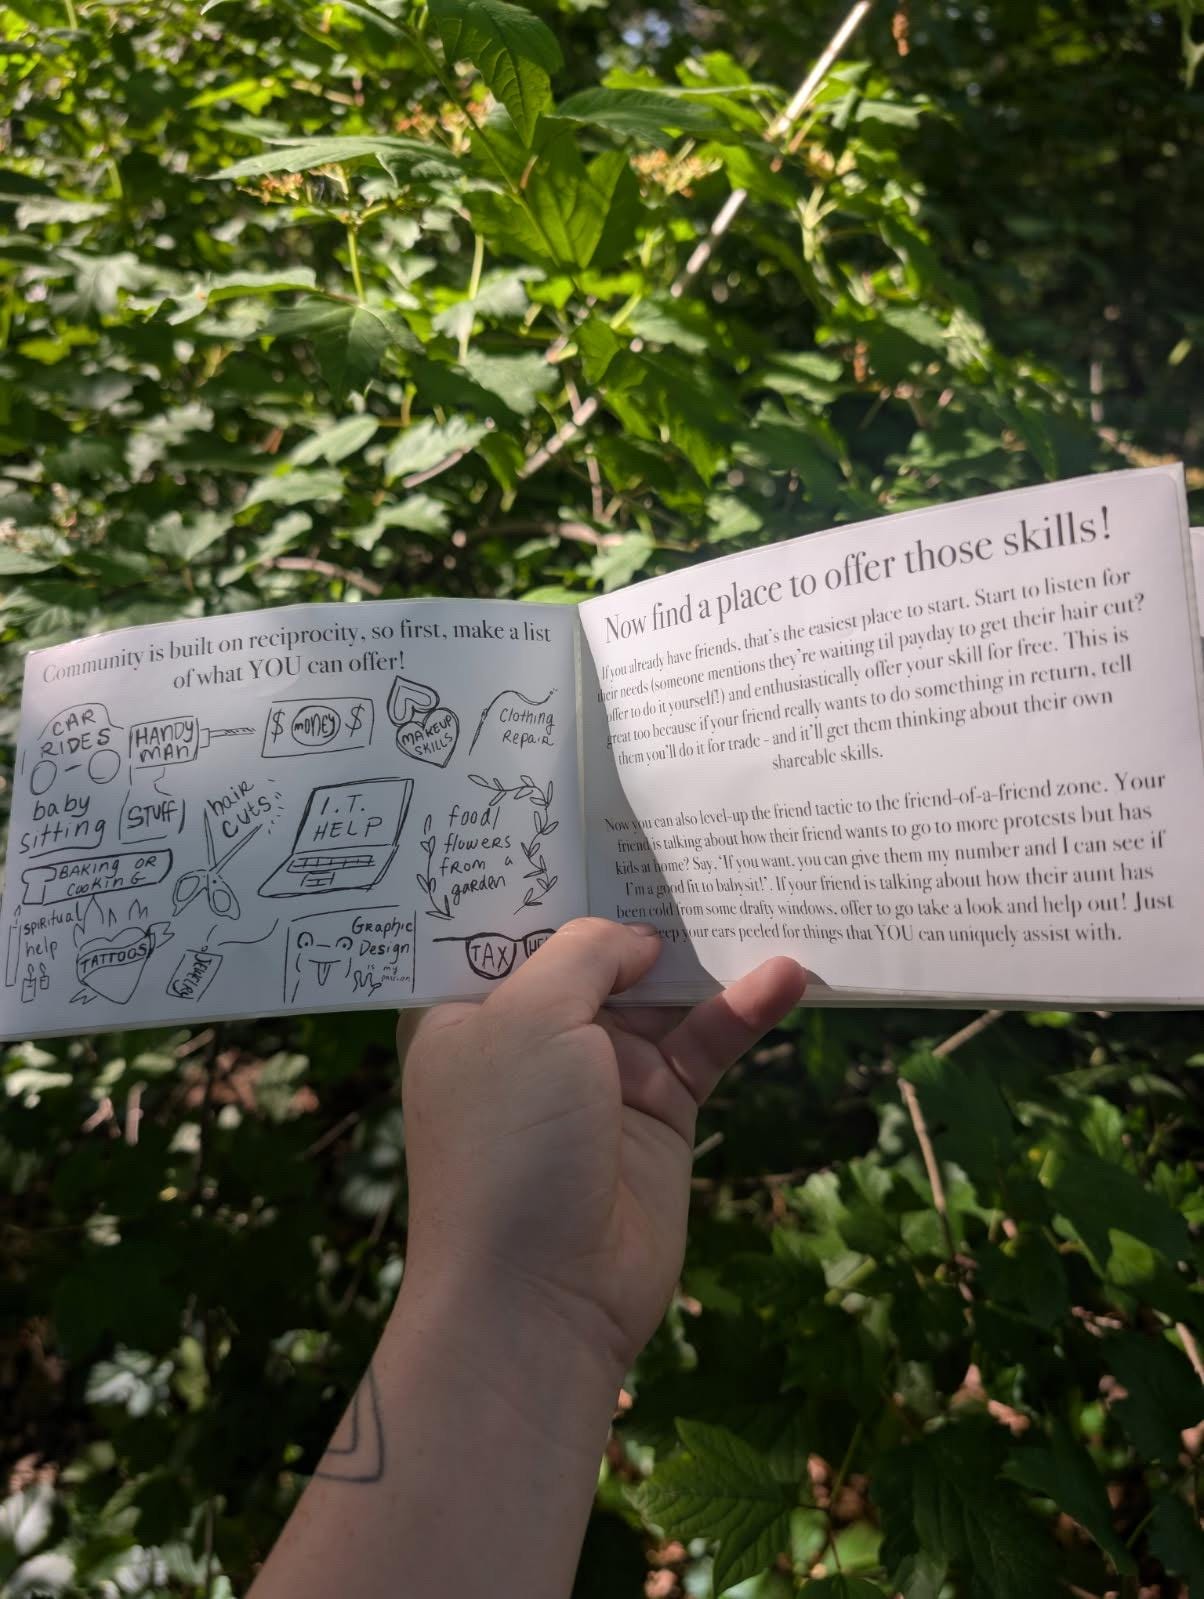 Community is built on reciprocity, so first, make a list
of what YOU can offer!
CAR
RIDES
HANDY
MAN
$ MONEY $
MAKEUP
SKILLS
Clothing
Repair
baby
sitting
STUFF
hair
cuts
I.T.
HELP
food/
flowers
from a
garden
BAKING OR
COOKING
spiritual
help
TATTOOS
JEWELRY
Graphic
Design
is my
passion
TAX
Now find a place to offer those skills!
If you already have friends, that's the easiest place to start. Start to listen for
their needs (someone mentions they're waiting til payday to get their hair cut?
offer to do it yourself!) and enthusiastically offer your skill for free. This is
great too because if your friend really wants to do something in return, tell
them you'll do it for trade - and it'll get them thinking about their own
shareable skills.
Now you can also level-up the friend tactic to the friend-of-a-friend zone. Your
friend is talking about how their friend wants to go to more protests but has
kids at home? Say, "If you want, you can give them my number and I can see if
I'm a good fit to babysit!". If your friend is talking about how their aunt has
been cold from some drafty windows, offer to go take a look and help out! Just
your ears peeled for things that YOU can uniquely assist with.